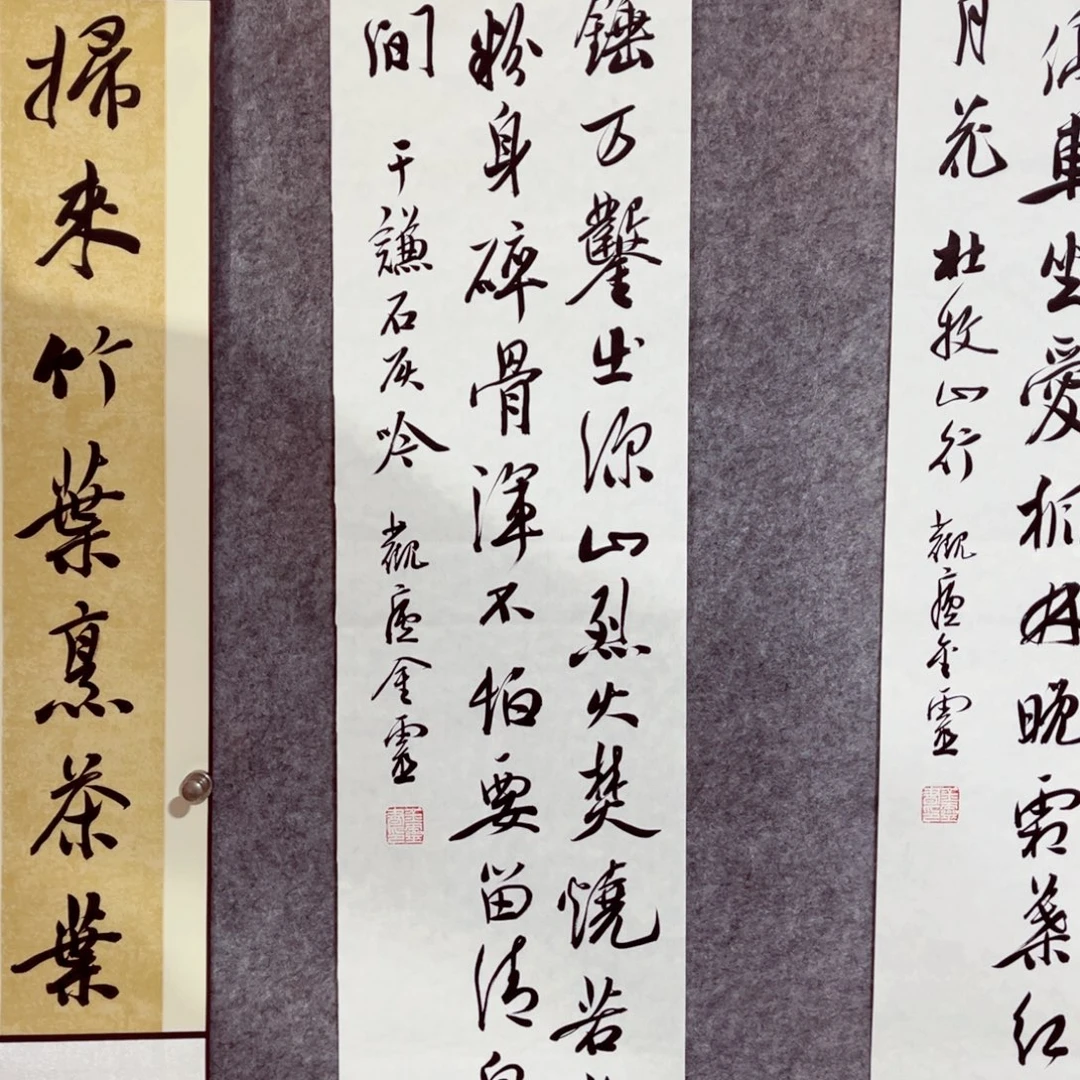 停車坐愛楓林晚霜葉紅
月花 杜牧山行 觀廬金靈
錘万鑿出深山烈火焚燒若
粉身碎骨渾不怕要留清白
间 于謙石灰吟 觀廬金靈
掃來竹葉烹茶葉